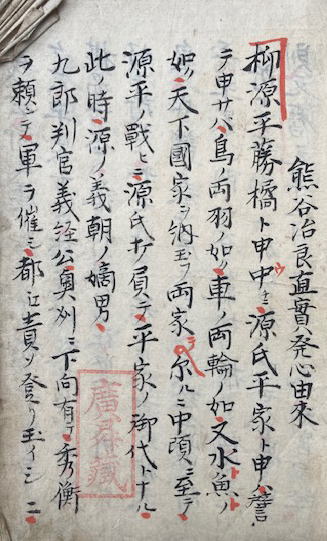 熊谷治良直實発心由来
柳源平勝橘ト申中ニ源氏平家ト申ハ譬
テ申サバ鳥ノ両羽ノ如ク車ノ両輪ノ如ク又水魚ノ
如ク天下國家ヲ納玉フ両家尓ルニ中頃ニ至テ
源平ノ戰ヒニ源氏打負テ平家ノ御代トナル
此ノ時源ノ義朝ノ嫡男
九郎判官義経公奥州ニ下向有テ秀衡
ヲ頼ミテ軍ヲ催シ都江責メ登リ玉イシニ
廣昇藏